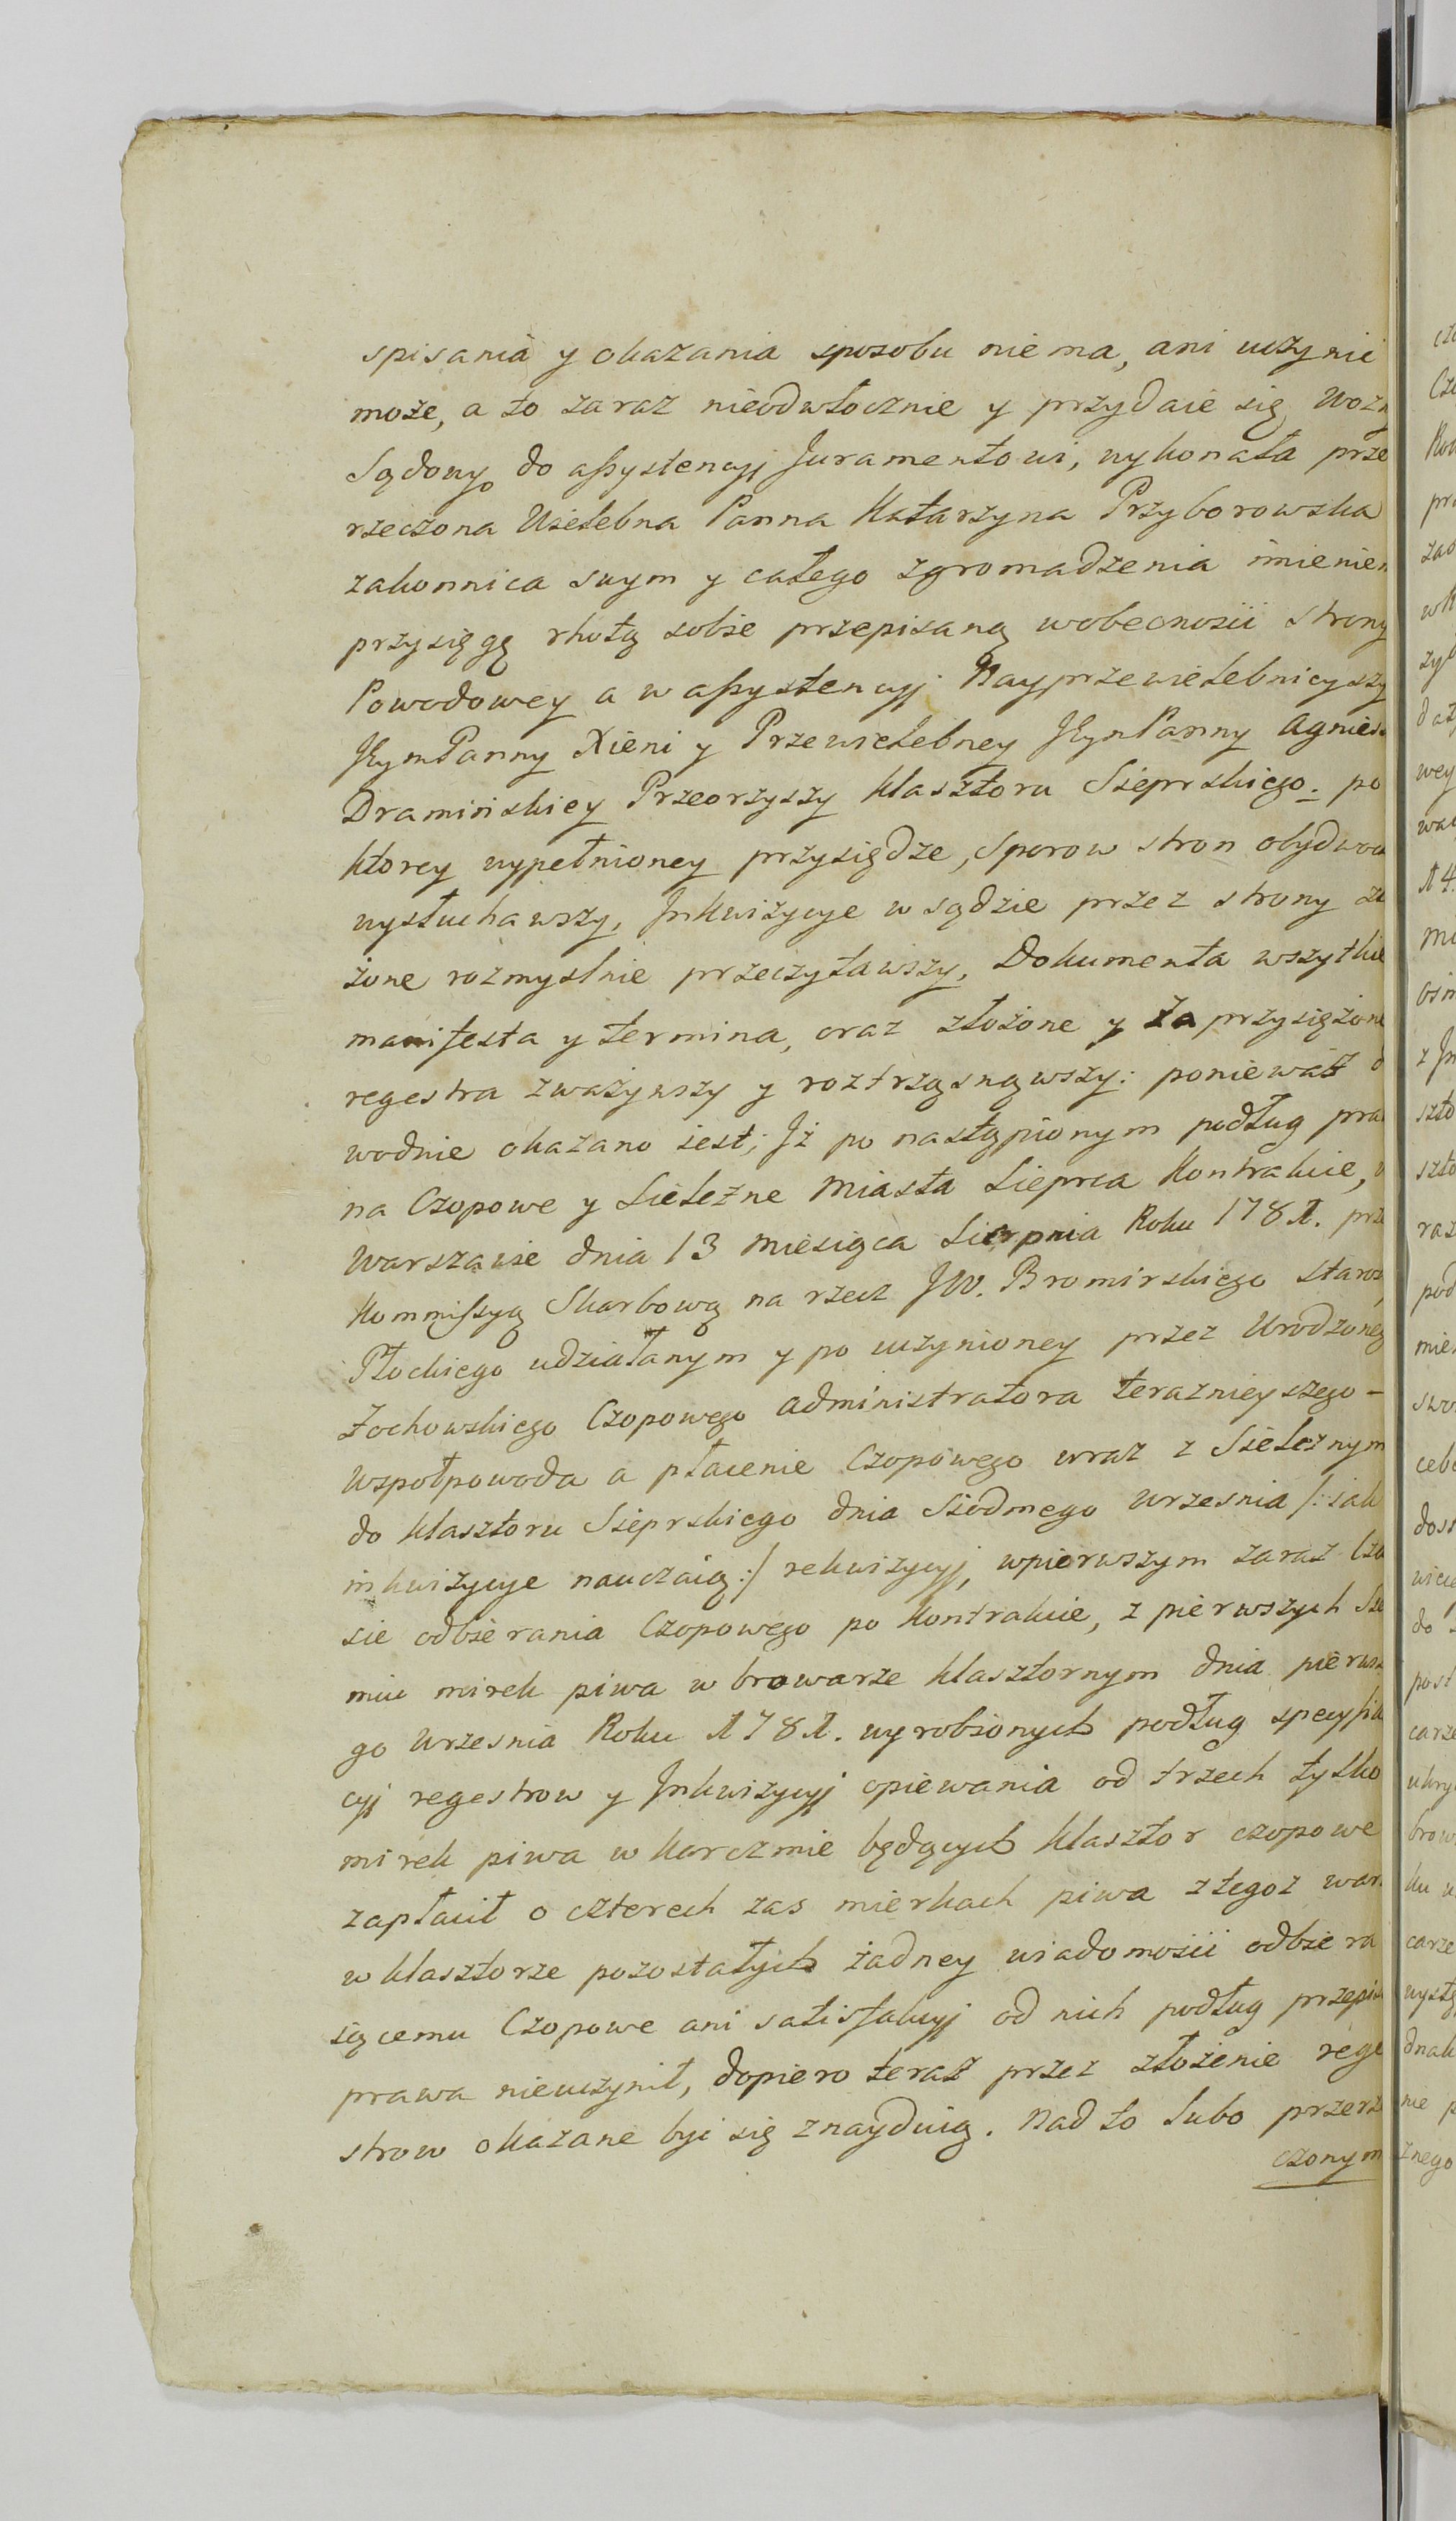 spisania y okazania sposobu nie ma, ani uczynic
może, a to zaraz nieodwłocznie y przydaie się Wozn
Sądowy do assystencyj Juramentowi, wykonała prze
rzeczona Wielebna Panna Katarzyna Przyborowska
zakonnica swym y całego zgromadzenia imienien
przysięgę rhotą sobie przepisaną wobecnosii strony
Powodowey a w assystencyj Nayprzewielebnieyszy
JKymPanny Xieni y Przewielebney JKynPanny Agnies
Draminskiey Przeoryszy klasztoru Sieprskiego. po
ktorey wypełnioney przysiędze, Sporow stron obydwoc
wysłuchawszy, Jnkwizycye w sądzie przez strony zł
żone rozmyslnie przeczytawszy, Dokumenta wszytkie
manifesta y termina, oraz złożone y zaprzysiężone
regestra zważywszy y roztrząsnąwszy: ponieważ d
wodnie okazano iest; Jż po nastąpionym podług pra
na Czopowe y Sieleżne Miasta Sieprca Kontrakcie,
Warszawie dnia 13 Miesiąca Sierpnia Roku 1781. prz
Kommissyą Skarbową na rzecz JW. Bromirskiego Staros
Płockiego udziałanym y po uczynioney przez Urodzoneg
Żochowskiego Czopowego administratora teraznieyszego -
Wspołpowoda a płacenie Czopowego wraz z Sieleznym
do klasztoru Sieprskiego dnia Siodmego Wrzesnia /: iak
inkwizycye nauczaią :/ rekwizycyj, wpierwszym zaraz Cza
sie odbierania Czopowego po Kontrakcie, z pierwszych Sie
miu mirek piwa w browarze klasztornym dnia pierwsz
go Wrzesnia Roku 1781. wyrobionych podług specyfik
cyj regestrow y Jnkwizycyj opiewania od trzech tylko
mirek piwa w karczmie będących klasztor czopowe
zapłacił o czterech zas mierkach piwa z tegoz war
w klasztorze pozostałych żadney wiadomosii odbiera
iącemu Czopowe ani satisfakcyj od nich podług przepis
prawa nieuczynił, dopiero teraz przez złożenie rege
strow okazane byc się znayduią. Nad to lubo przerze
czonym